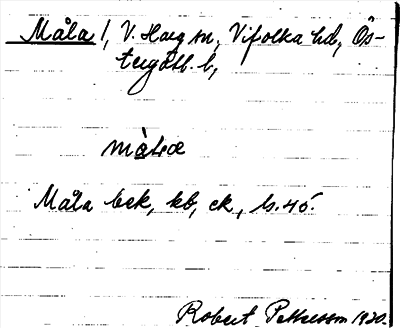 Måla 1, V. Harg sn, Vifolka hd, Ös-
tergötl. l,
màlɑ
Måla bek, kb, ek, ls. 45.
Robert Pettersson 1920.